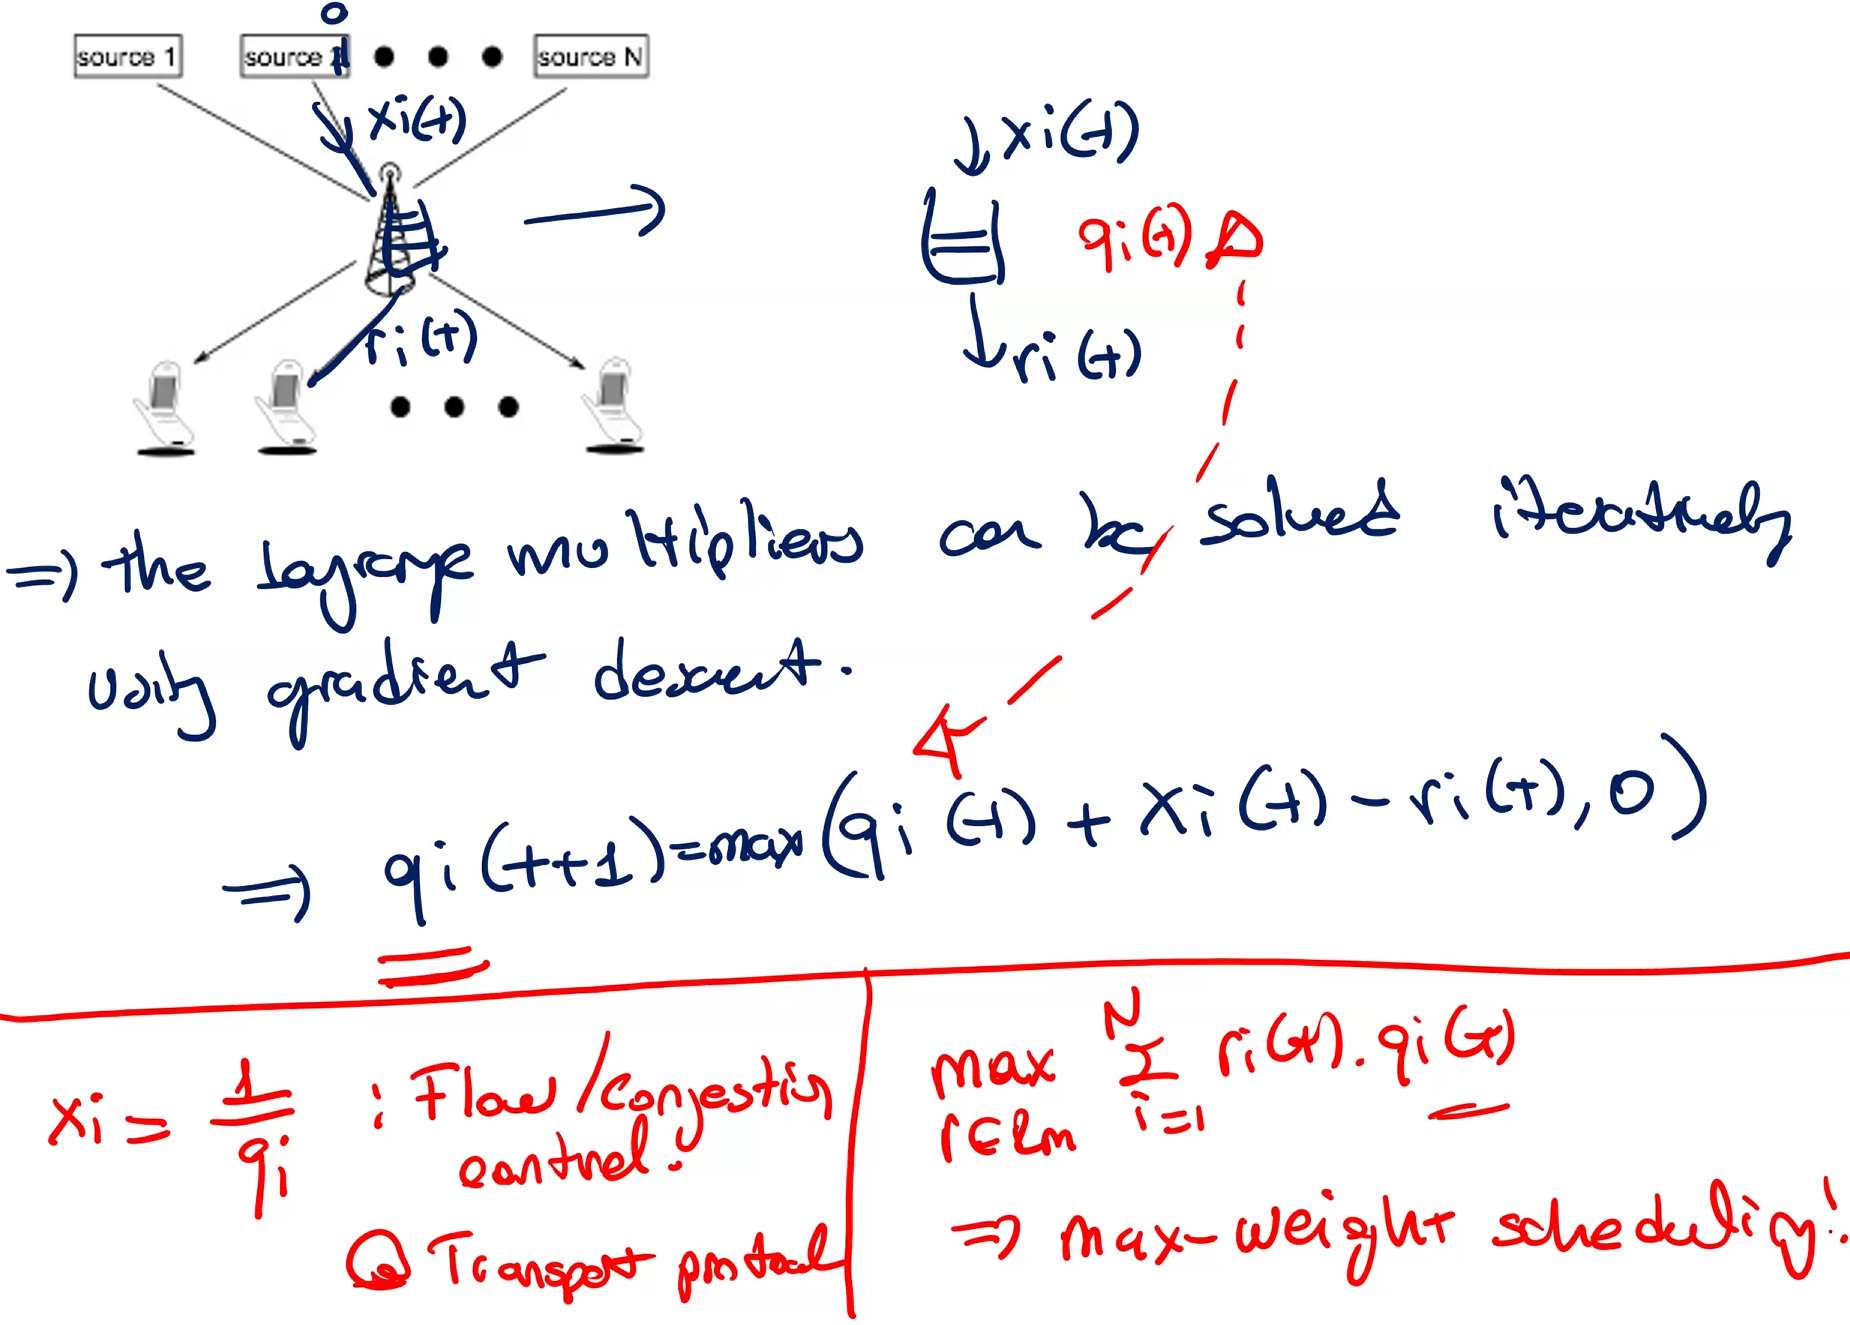 source 1 source source N
xi(t)
ri(t)
xi(t)
qi(t)
ri(t)
=> the Lagrange multipliers can be solved iteratively
using gradient descent.
=> qi(t+1)=max(qi(t) + xi(t) - ri(t), 0)
xi = 1/qi : Flow/Congestion
control.
@ Transport protocol
max Σ_{i=1}^{N} ri(t). qi(t)
=> max-weight scheduling!